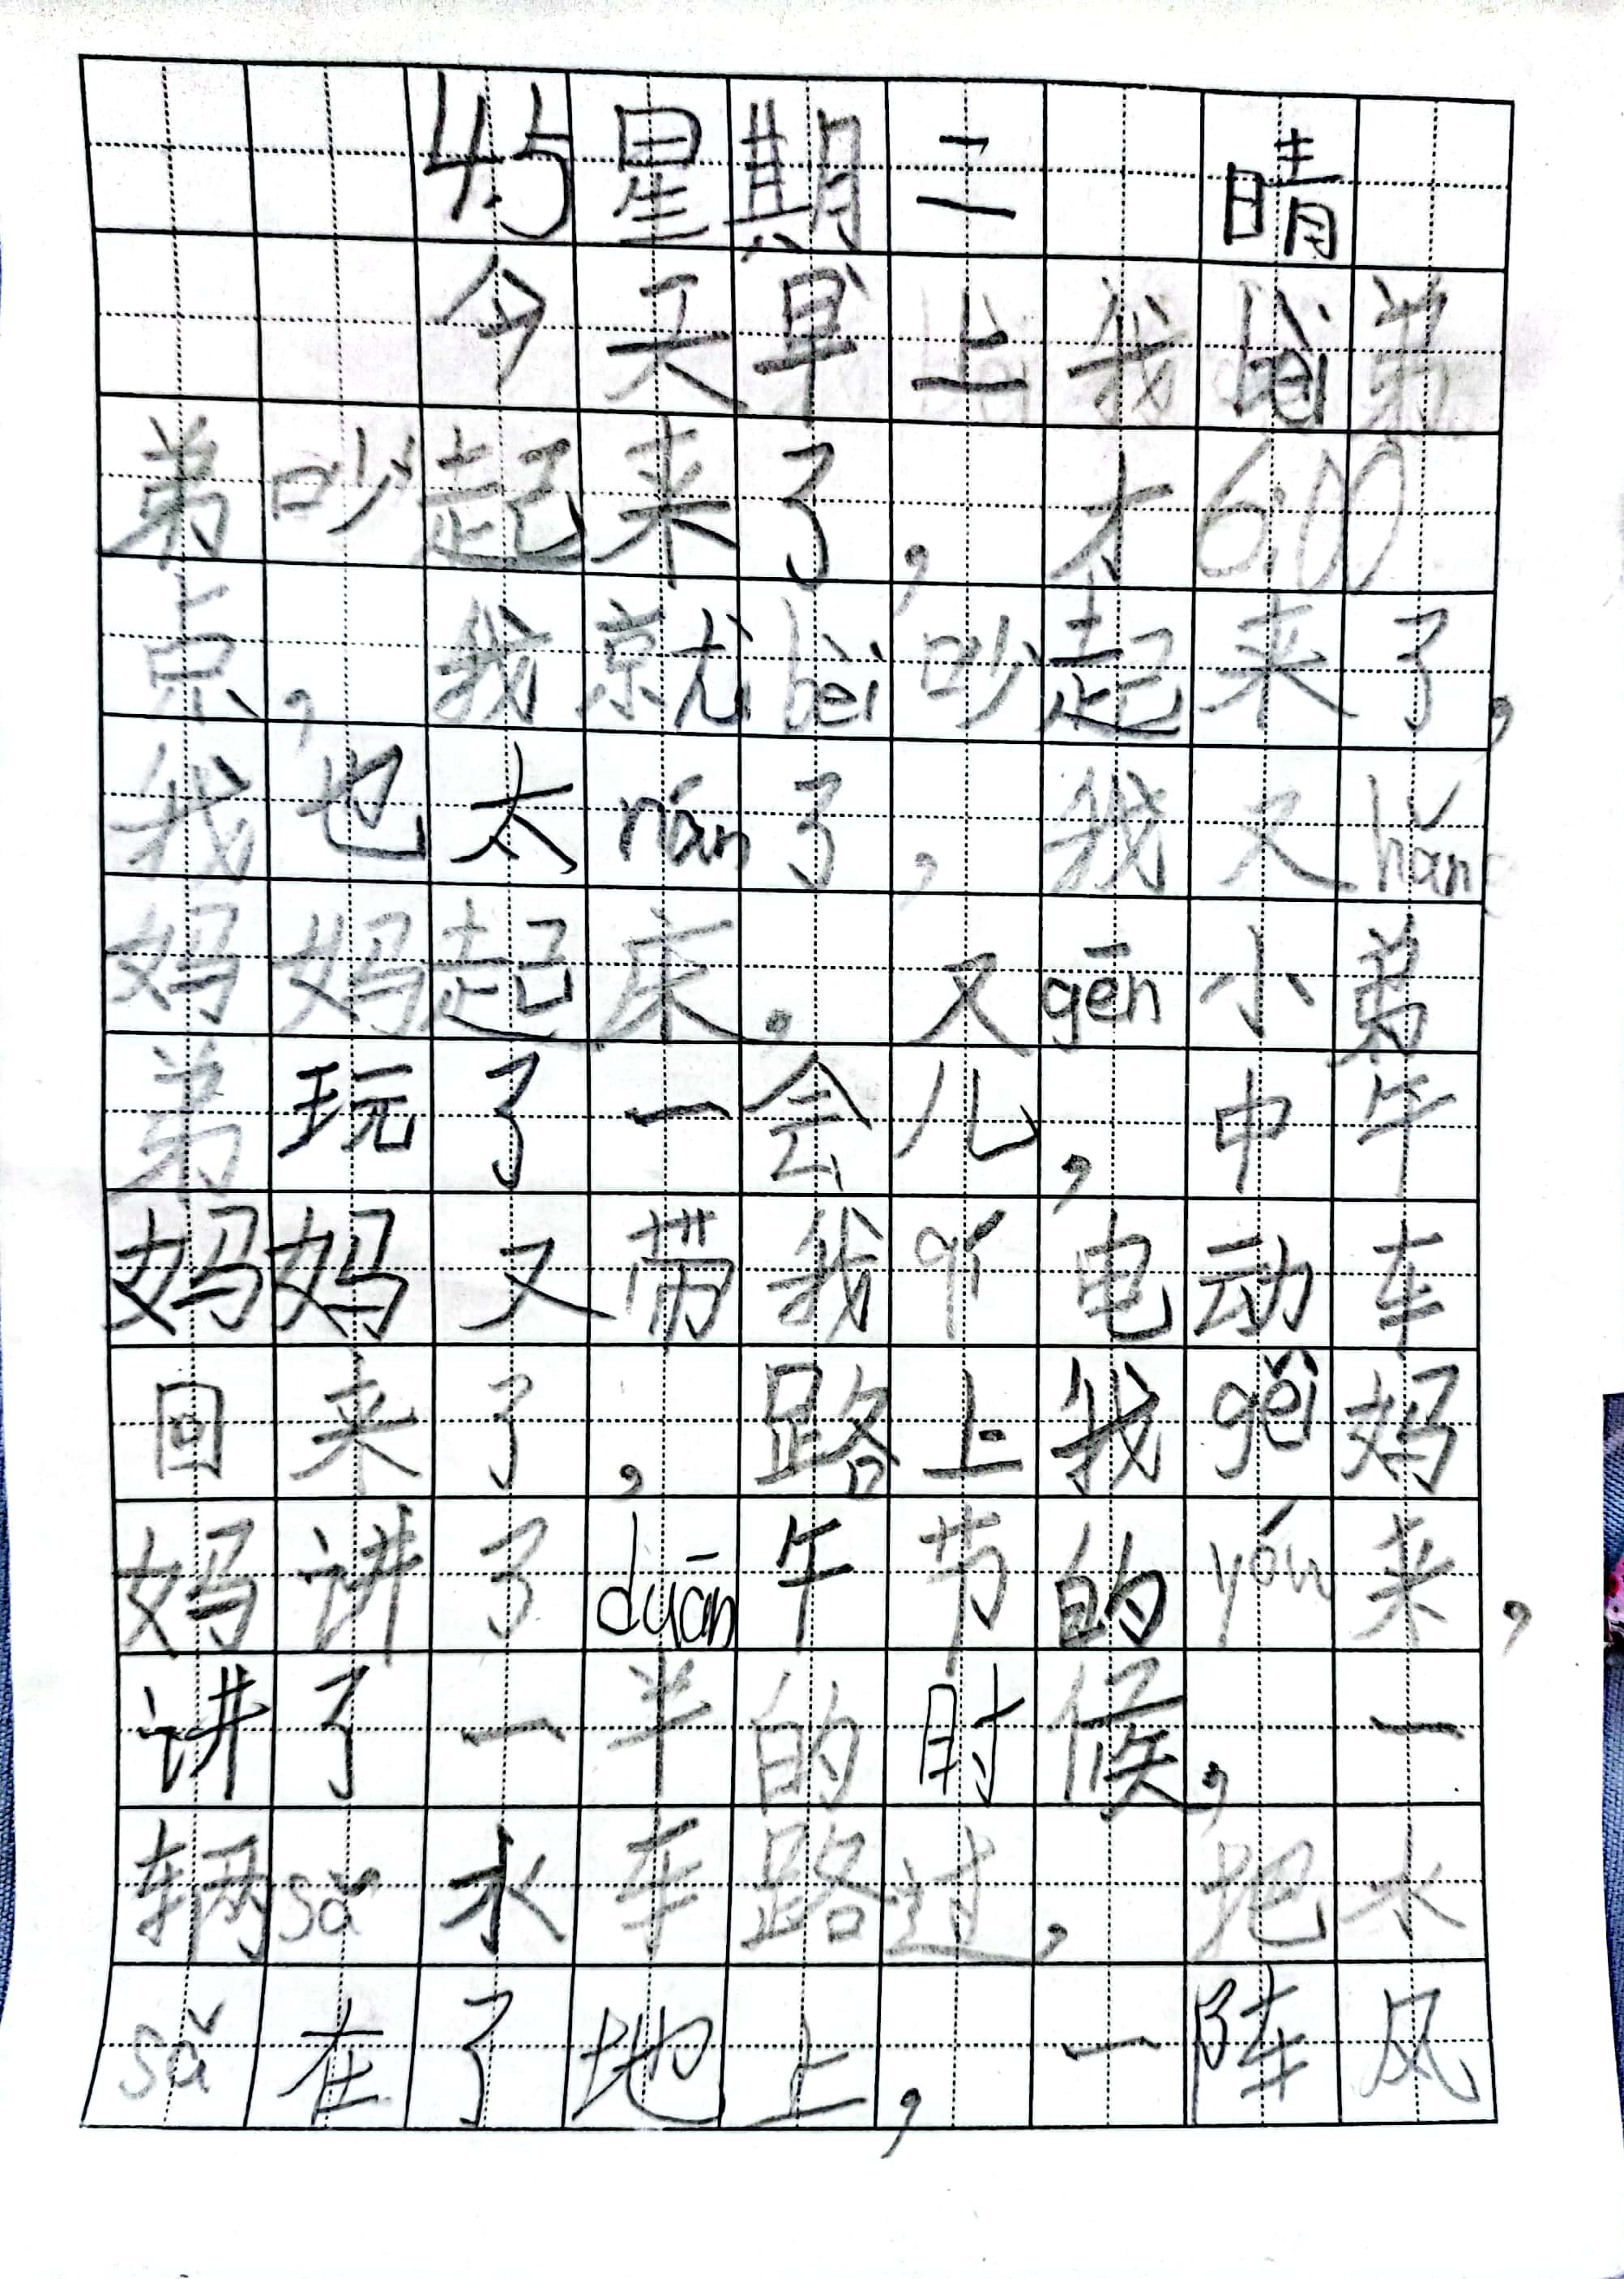 4.5 星期二 晴
今天早上我bèi弟
弟吵起来了，才6:00
点，我就bèi吵起来了，
我也太nán了，我又hǎn
妈妈起床。又gēn小弟
弟玩了一会儿，中午
妈妈又带我qí电动车
回来了，路上我gěi妈
妈讲了duān午节的yóu来，
讲了一半的时候，一
辆sǎ水车路过，把水
sǎ在了地上，一阵风